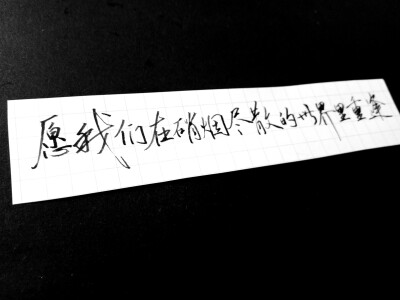 愿我们在硝烟尽散的世界里重逢